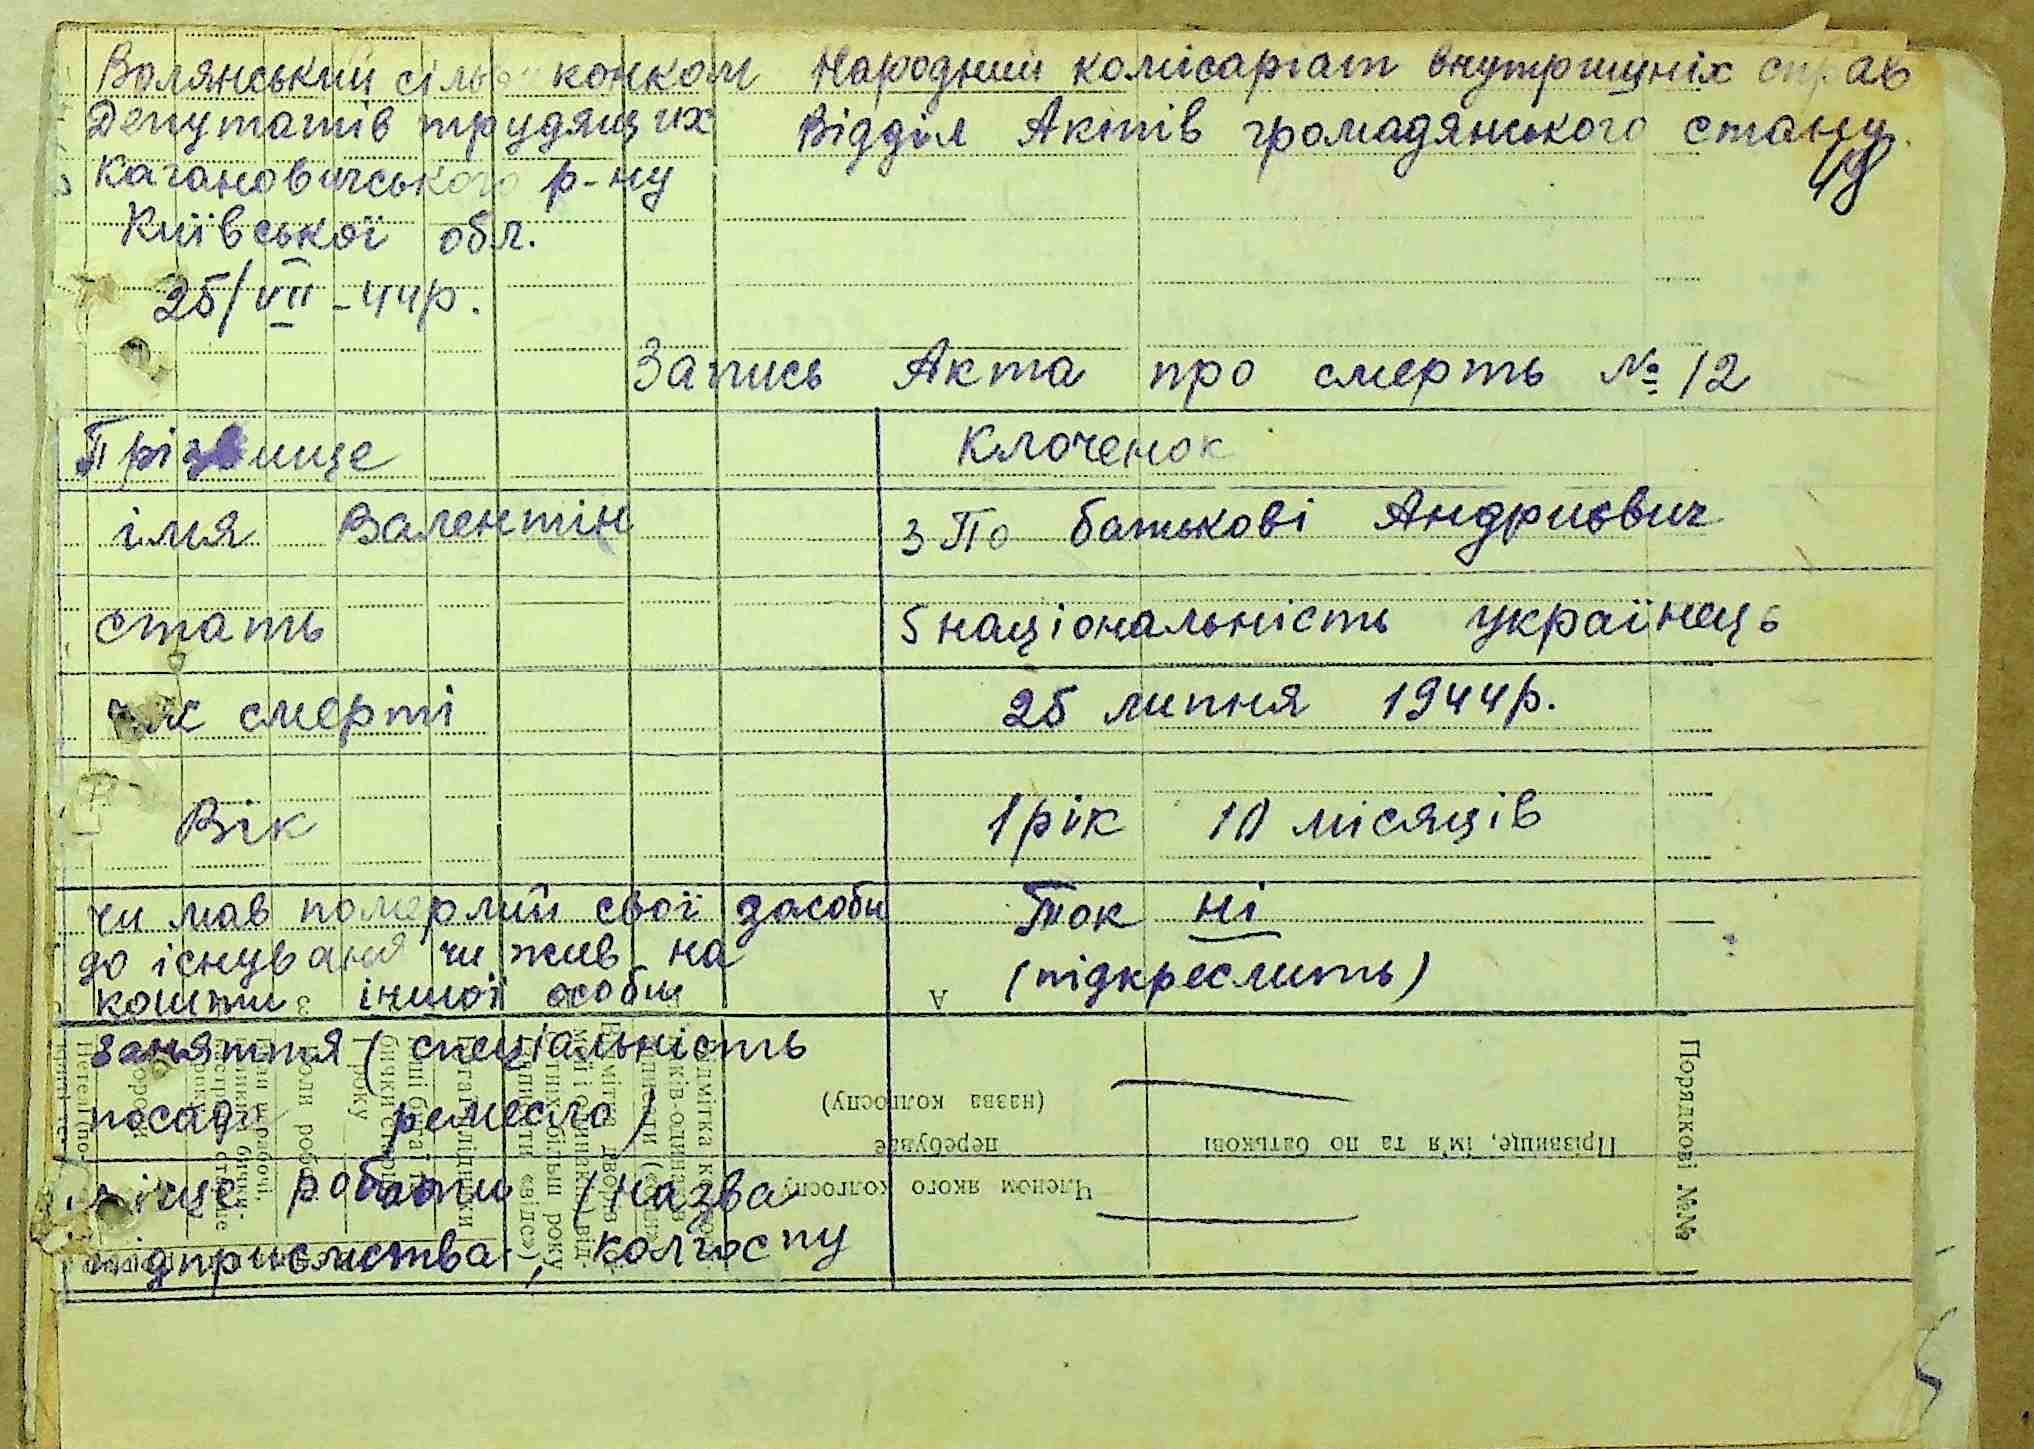 Волянський сіль конком Народний комісаріат внутришніх справ
Депутатів трудящих Відділ Актів громадянського стану
48
Кагановичського р-ну
Київської обл.
25/VII -44р.
Запись Акта про смерть № 12
Прізвище Клоченок
імя Валентін 3 По батькові Андриович
стать 5 національність українець
час смерті 25 липня 1944р.
Вік 1 рік 10 місяців
чи мав померлий свої засоби Так ні
до існуваня чи жив на (підкреслить)
кошти іншої особи
А
заняття (специальність
посада ремесло)
місце роботи (назва
підприємства, колгоспу
Порядкові №№
Прізвище, ім'я та по батькові
Членом якого колгоспу
перебуває
(назва колгоспу)